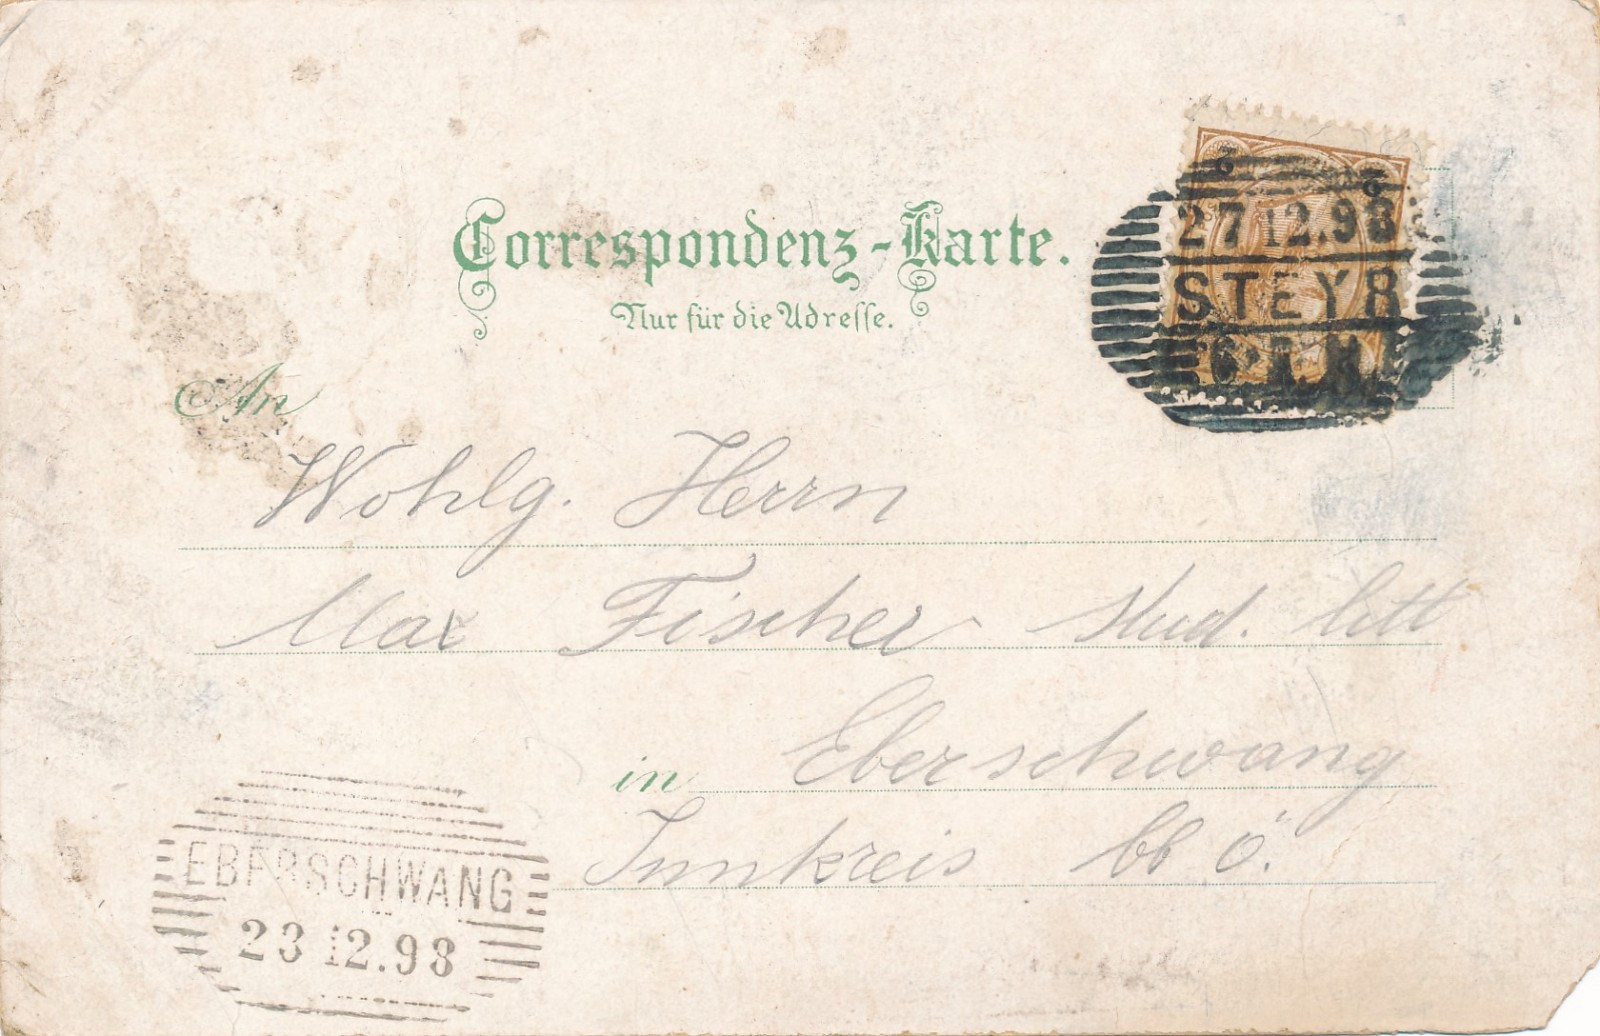 Correspondenz-Karte.
Nur für die Adresse.
2 2
27 12.98
STEYR
6 A.M.
An
Wohlg. Herrn
Max Fischer stud. litt
in Eberschwang
Innkreis ob Ö.
EBERSCHWANG
28 12.98